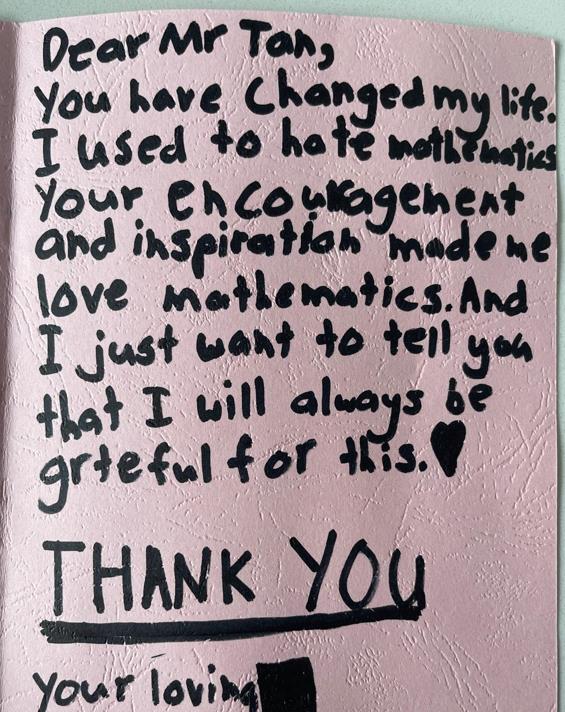 Dear Mr Tan,
you have changed my life.
I used to hate mathematics
your encouragement
and inspiration made me
love mathematics. And
I just want to tell you
that I will always be
grteful for this.
THANK YOU
your loving